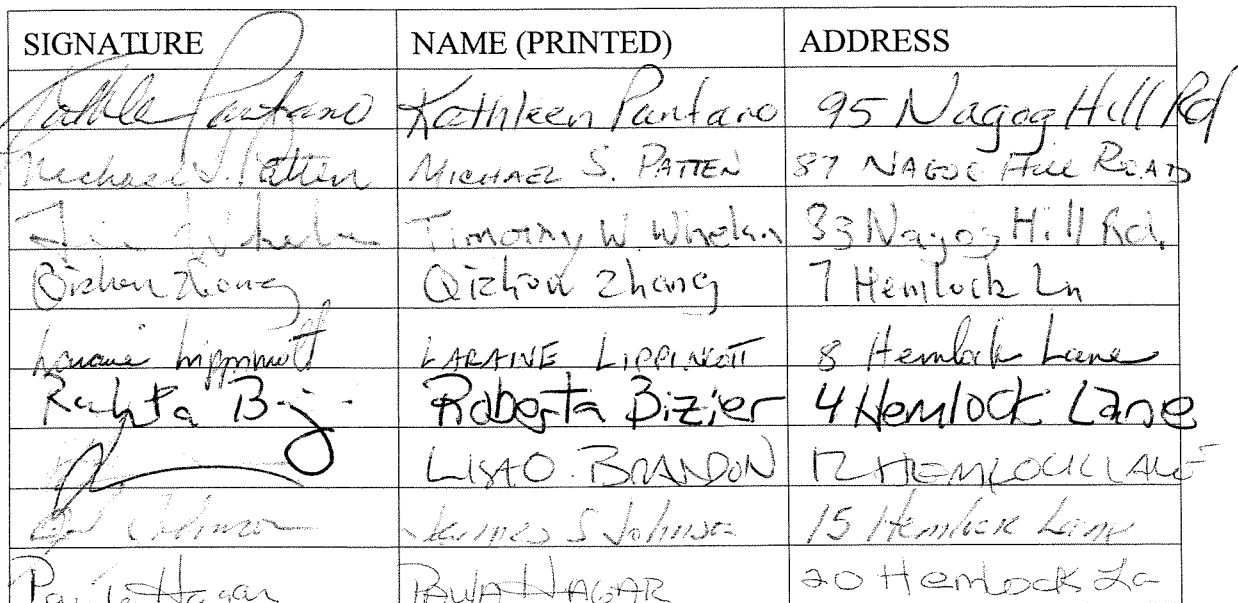 SIGNATURE NAME (PRINTED) ADDRESS
Pantano Kathleen Pantano 95 Nagog Hill Rd
Michael S. Patten MICHAEL S. PATTEN 87 NAGOG HILL ROAD
Timothy W. Whelan 33 Nagog Hill Rd.
Qizhou Zhang Qizhou Zhang 7 Hemlock Ln
Laraine Lippincott LARAINE LIPPINCOTT 8 Hemlock Lane
Roberta Roberta Bizier 4 Hemlock Lane
LISA O. BRANDON 12 HEMLOCK LANE
Johnson James S Johnson 15 Hemlock Lane
Paula Hagar PAULA HAGAR 20 Hemlock La